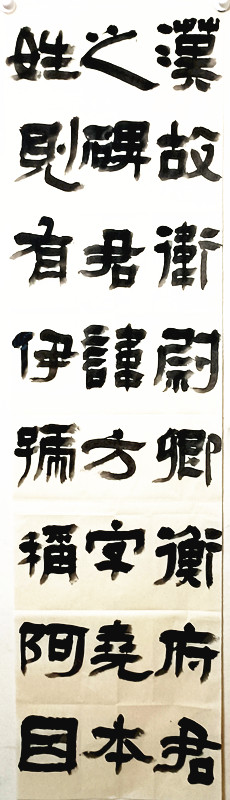 漢故衛尉卿衡府君
之碑君諱方字堯本
姓則有伊號稱阿因